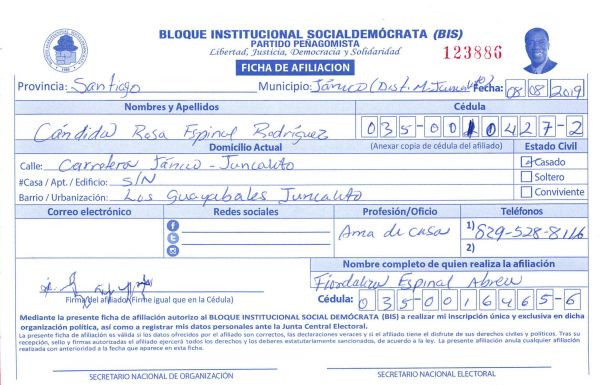 BLOQUE INSTITUCIONAL SOCIALDEMÓCRATA (BIS)
PARTIDO PEÑAGOMISTA
Libertad, Justicia, Democracia y Solidaridad
123886
FICHA DE AFILIACION
Provincia: Santiago Municipio: Jánico (Dist. M. Juncalito) Fecha: 08 08 2019
Nombres y Apellidos Cédula
Cándida Rosa Espinal Rodríguez 035-0010427-2
Domicilio Actual (Anexar copia de cédula del afiliado) Estado Civil
Calle: Carretera Jánico - Juncalito Casado
#Casa / Apt. / Edificio: S/N Soltero
Barrio / Urbanización: Los Guayabales Juncalito Conviviente
Correo electrónico Redes sociales Profesión/Oficio Teléfonos
Ama de casa 1) 829-528-8116
2)
Nombre completo de quien realiza la afiliación
Fiordaliza Espinal Abreu
Firma del afiliado (Firme igual que en la Cédula) Cédula: 035-0016465-6
Mediante la presente ficha de afiliación autorizo al BLOQUE INSTITUCIONAL SOCIAL DEMÓCRATA (BIS) a realizar mi inscripción única y exclusiva en dicha
organización política, así como a registrar mis datos personales ante la Junta Central Electoral.
La presente ficha de afiliación es válida si los datos ofrecidos por el afiliado son correctos, las declaraciones veraces y si el afiliado tiene el disfrute de sus derechos civiles y políticos. Tras su
recepción, sello y firmas autorizadas el afiliado ejercerá todos los derechos y los deberes estatutariamente sancionados, de acuerdo a la ley. La presente afiliación anula cualquier afiliación
realizada con anterioridad a la fecha que aparece en esta ficha.
SECRETARIO NACIONAL DE ORGANIZACIÓN SECRETARIO NACIONAL ELECTORAL